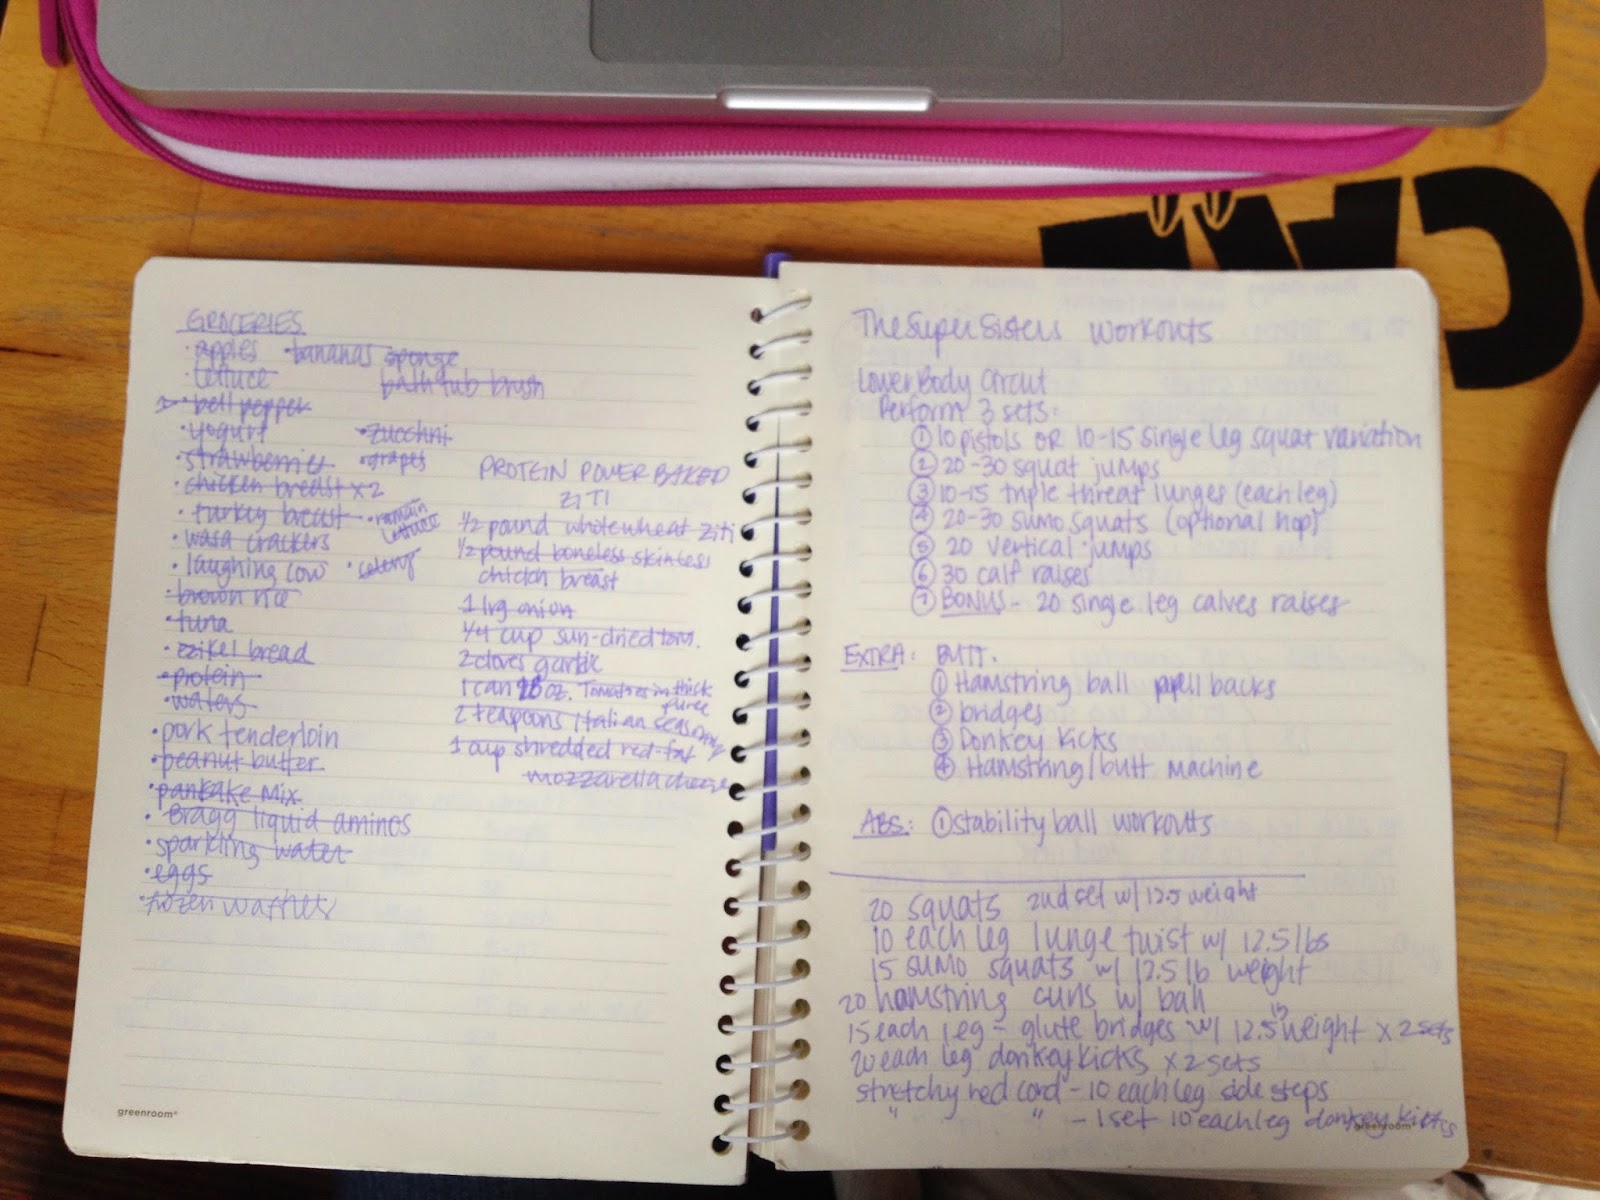 GROCERIES
· apples · bananas sponge
· lettuce bath tub brush
· bell pepper
· yogurt · zucchni
· strawberries · grapes
· chicken breast x 2
· turkey breast · romain lettuce
· wasa crackers
· laughing cow · celery
· brown rice
· tuna
· ezikel bread
· protein
· waters
· pork tenderloin
· peanut butter
· pankake mix
· Bragg liquid aminos
· sparkling water
· eggs
· frozen waffles
PROTEIN POWER BAKED
ZITI
1/2 pound wholewheat ziti
1/2 pound boneless skinless
chicken breast
1 lrg onion
1/4 cup sun-dried tom.
2 cloves garlic
1 can 28 oz. Tomatoes in thick
puree
2 teaspoons Italian seasoning
1 cup shredded red-fat
mozzarella cheese
greenroom®
The Super Sisters Workouts
Lower Body Circut
Perform 3 sets:
① 10 pistols OR 10-15 single leg squat variation
② 20-30 squat jumps
③ 10-15 triple threat lunges (each leg)
④ 20-30 sumo squats (optional hop)
⑤ 20 vertical jumps
⑥ 30 calf raises
⑦ BONUS - 20 single leg calves raises
EXTRA: BUTT.
① Hamstring ball pull backs
② bridges
③ Donkey Kicks
④ Hamstring/butt machine
ABS: ① stability ball workouts
20 squats 2nd set w/ 12.5 weight
10 each leg lunge twist w/ 12.5 lbs
15 sumo squats w/ 12.5 lb weight
20 hamstring curls w/ ball
15 each leg - glute bridges w/ 12.5 lb weight x 2 sets
20 each leg donkey kicks x 2 sets
stretchy red cord - 10 each leg side steps
" " - 1 set 10 each leg donkey kicks
greenroom®